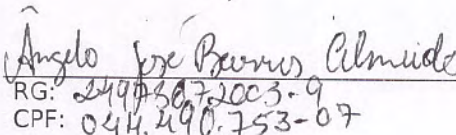 Ângelo José Barros Almeida
RG: 24973072003-9
CPF: 044.490.753-07